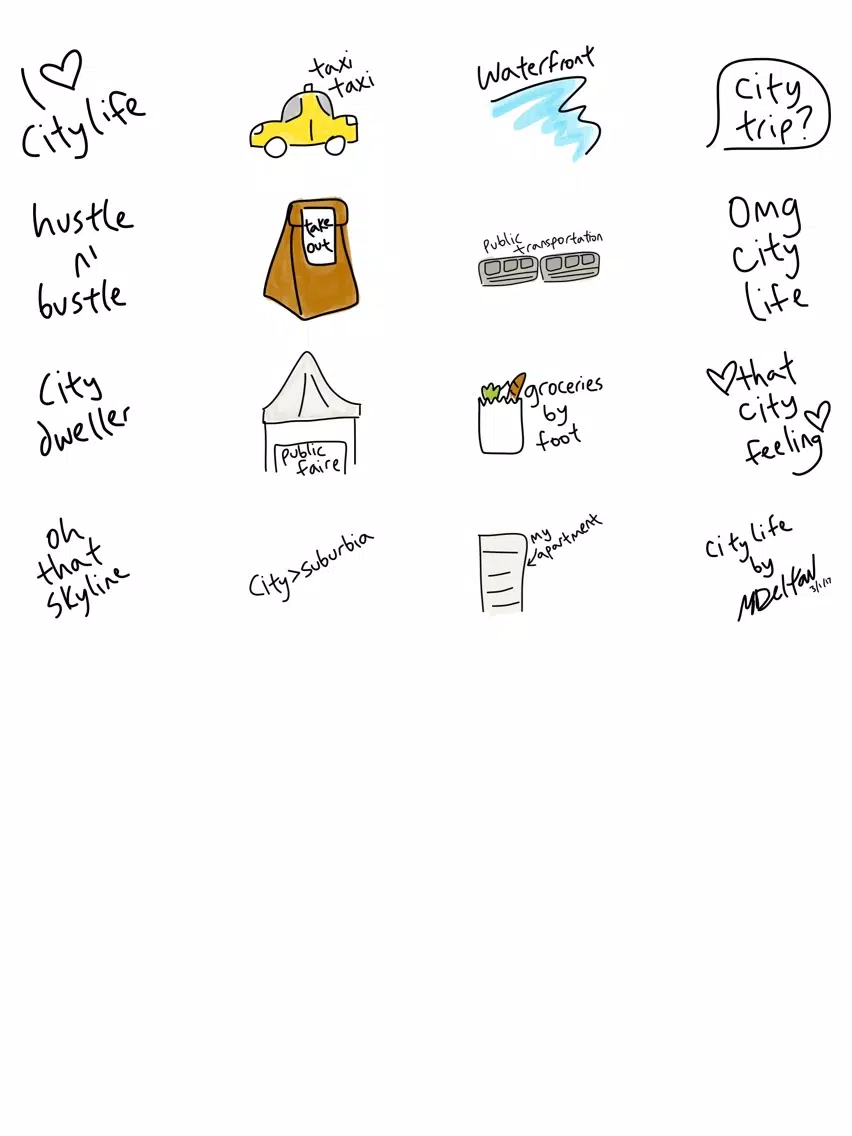 I ♡
City life
taxi
taxi
Waterfront
City
trip?
hustle
n'
bustle
take
out
public
transportation
OMG
City
life
City
dweller
public
faire
groceries
by
foot
♡that
city
feeling♡
oh
that
skyline
City>suburbia
my
apartment
City life
by
MDeltan
3/1/17